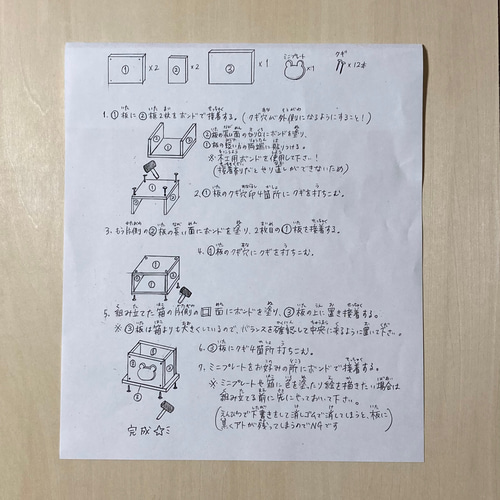 ① ×2 ② ×2 ③ ×1 ミニプレート ×1 クギ ×12本
1. ①板に②板2枚をボンドで接着する。(クギ穴が外側になるようにすること!)
②板の長い面の切り口にボンドを塗り、
①板の短い方の両端に貼りつける。
※木工用ボンドを使用して下さい!
(接着剤だとやり直しができないため)
2. ①板のクギ穴印4箇所にクギを打ちこむ。
3. もう片側の②板の長い面にボンドを塗り、2枚目の①板を接着する。
4. ①板のクギ穴にクギを打ちこむ。
5. 組み立てた箱の片側の口面にボンドを塗り、③板の上に置き接着する。
※③板は箱よりも大きくしているので、バランスを確認して中央に来るように置いて下さい。
6. ③板にクギ4箇所打ちこむ。
7. ミニプレートをお好みの所にボンドで接着する。
※ミニプレートや箱に色を塗ったり絵を描きたい場合は
組み立てる前に先にやっておいて下さい。
(えんぴつで下書きをして消しゴムで消してしまうと、板に
黒くアトが残ってしまうのでNGです)
完成☆ミ